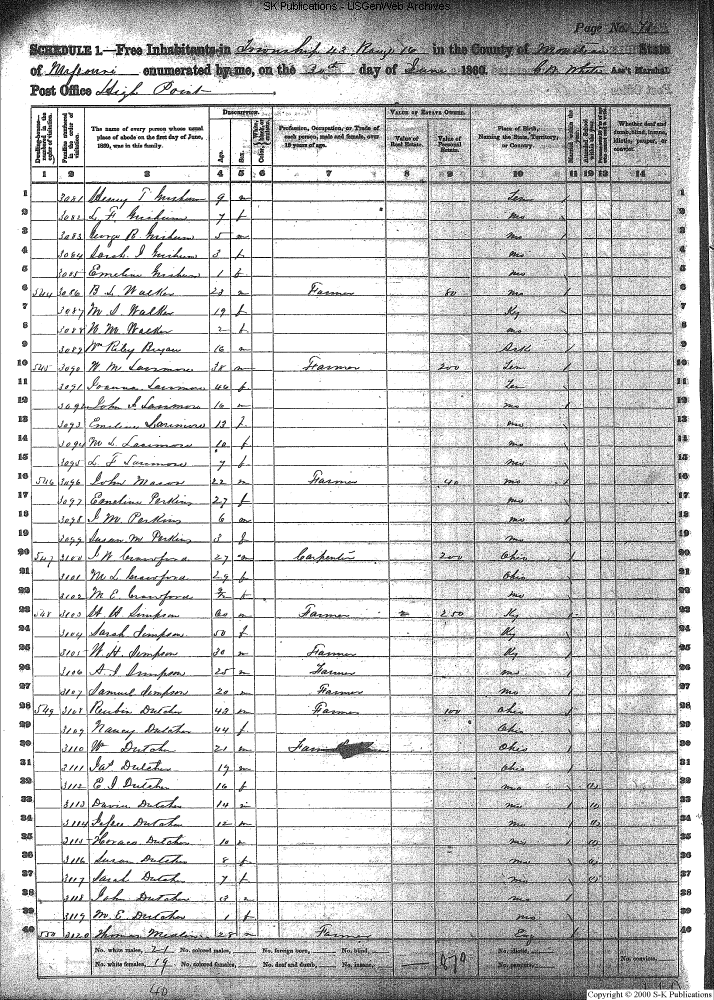 SK Publications - USGenWeb Archives
Page No. 
SCHEDULE 1.—Free Inhabitants in Township 43 Range 16 in the County of State
of Missouri enumerated by me, on the 30th day of June 1860. Ass't Marshal.
Post Office High Point
DESCRIPTION. VALUE OF ESTATE OWNED.
The name of every person whose usual place of abode on the first day of June, 1860, was in this family. Age. Sex. Profession, Occupation, or Trade of each person, male and female, over 15 years of age. Value of Real Estate. Value of Personal Estate. Place of Birth, Naming the State, Territory, or Country. Whether deaf and dumb, blind, insane, idiotic, pauper, or convict.
1 2 3 4 5 6 7 8 9 10 11 12 13 14
1 3081 Henry T Grisham 9 m Ten 1
2 3082 L. F. Grisham 7 f Mo 2
3 3083 George B Grisham 5 m Mo 3
4 3084 Sarah I Grisham 3 f Mo 4
5 3085 Emeline Grisham 1 f Mo 5
6 544 3086 B L Walker 23 m Farmer 80 Mo 6
7 3087 M S Walker 19 f Ky 7
8 3088 N M Walker 2 f Mo 8
9 3089 Wm Riley Bryan 16 m Ark 9
10 545 3090 W M Larimore 38 m Farmer 200 Ten 10
11 3091 Joanna Larimore 44 f Ten 11
12 3092 John I Larimore 16 m Mo 12
13 3093 Emeline Larimore 13 f Mo 13
14 3094 M L Larimore 10 f Mo 14
15 3095 L F Larimore 7 f Mo 15
16 546 3096 John Mason 22 m Farmer 40 Mo 16
17 3097 Emeline Perkins 27 f Mo 17
18 3098 I M Perkins 6 m Mo 18
19 3099 Susan M Perkins 3 f Mo 19
20 547 3100 I W Crawford 27 m Carpenter 200 Ohio 20
21 3101 M L Crawford 29 f Ohio 21
22 3102 M E Crawford f Mo 22
23 548 3103 Simpson 60 m Farmer 250 Ky 23
24 3104 Sarah Simpson 50 f Ky 24
25 3105 W. H. Simpson 30 m Farmer Ky 25
26 3106 A. I Simpson 25 m Farmer Mo 26
27 3107 Samuel Simpson 20 m Farmer Mo 27
28 549 3108 Reubin Dutcher 43 m Farmer 100 Ohio 28
29 3109 Nancy Dutcher 44 f Ohio 29
30 3110 Wm Dutcher 21 m Ohio 30
31 3111 Jas Dutcher 19 m Ohio 31
32 3112 E I Dutcher 16 f Mo 32
33 3113 David Dutcher 14 m Mo 33
34 3114 Dutcher 12 m Mo 34
35 3115 Horace Dutcher 10 m Mo 35
36 3116 Susan Dutcher 8 f Mo 36
37 3117 Sarah Dutcher 7 f Mo 37
38 3118 John Dutcher 3 m Mo 38
39 3119 M. E. Dutcher 1 f Mo 39
40 550 3120 Thomas 28 m Farmer Eng 40
No. white males, 21 No. colored males, No. foreign born, No. blind, No. idiotic,
No. white females, 19 No. colored females, No. deaf and dumb, No. insane, 870 No. paupers, No. convicts,
40
Copyright © 2000 S-K Publications